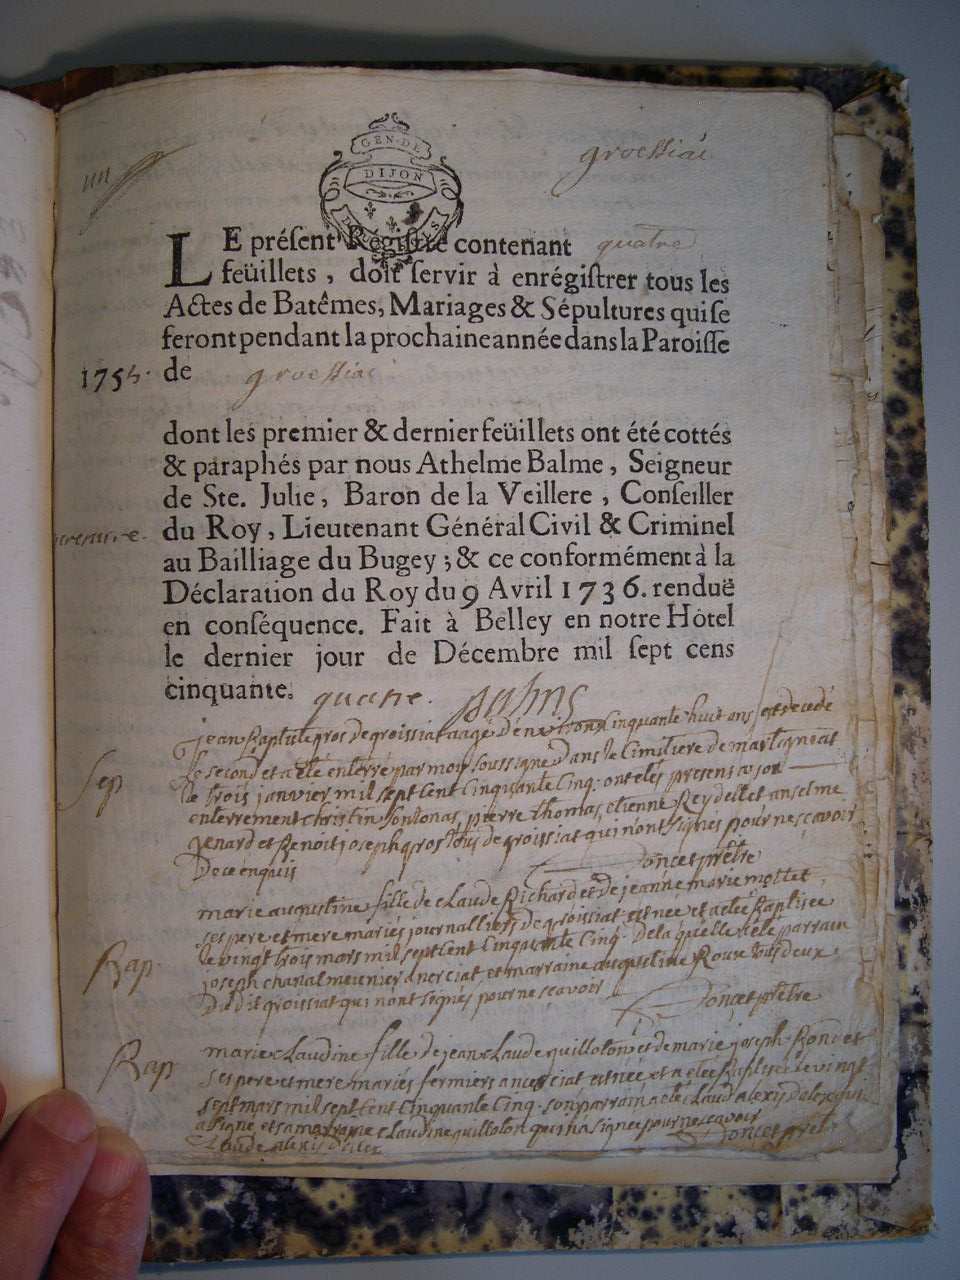 GEN. DE
DIJON
groissiai
LE présent Régistre contenant quatre
feüillets, doit servir à enrégistrer tous les
Actes de Batêmes, Mariages & Sépultures qui se
feront pendant la prochaine année dans la Paroisse
1755. de groissiai
dont les premier & dernier feüillets ont été cottés
& paraphés par nous Athelme Balme, Seigneur
de Ste. Julie, Baron de la Veillere, Conseiller
du Roy, Lieutenant Général Civil & Criminel
au Bailliage du Bugey; & ce conformément à la
Déclaration du Roy du 9 Avril 1736. renduë
en conséquence. Fait à Belley en notre Hôtel
le dernier jour de Décembre mil sept cens
cinquante. quatre. Balme
Sep jean Baptiste gros de groissiat aagé d'environ Cinquante huit ans est decedé
le second et a été enterré par moy soussigné dans le Cimetiere de martigniat
le trois janvier mil sept Cent Cinquante Cinq. ont etés presens a son
enterrement Christin fontanas, pierre Thomas, etienne Reydellet anselme
jenard et Benoit joseph gros tous de groissiat qui n'ont signés pour ne sçavoir
De ce enquis Doncet prêtre
Bap marie augustine fille de Claude Richard et de jeanne marie mollet
ses pere et mere mariés journalliers de groissiat est née et a été Baptisee
le vingt trois mars mil sept Cent Cinquante Cinq. de laquelle a été parrain
joseph chanal meunier a nerciat et marraine augustine Roux tous deux
Du dit groissiat qui n'ont signés pour ne scavoir Doncet prêtre
Bap marie Claudine fille de jean Claude quilloton et de marie joseph Bondet
ses pere et mere mariés fermiers a nerciat est née et a été Baptisee le vingt
sept mars mil sept Cent Cinquante Cinq. son parrain a été Claud alexis
a signé et sa marraine Claudine quilloton qui n'a signée pour ne scavoir
Claude alexis Doncet prêtre